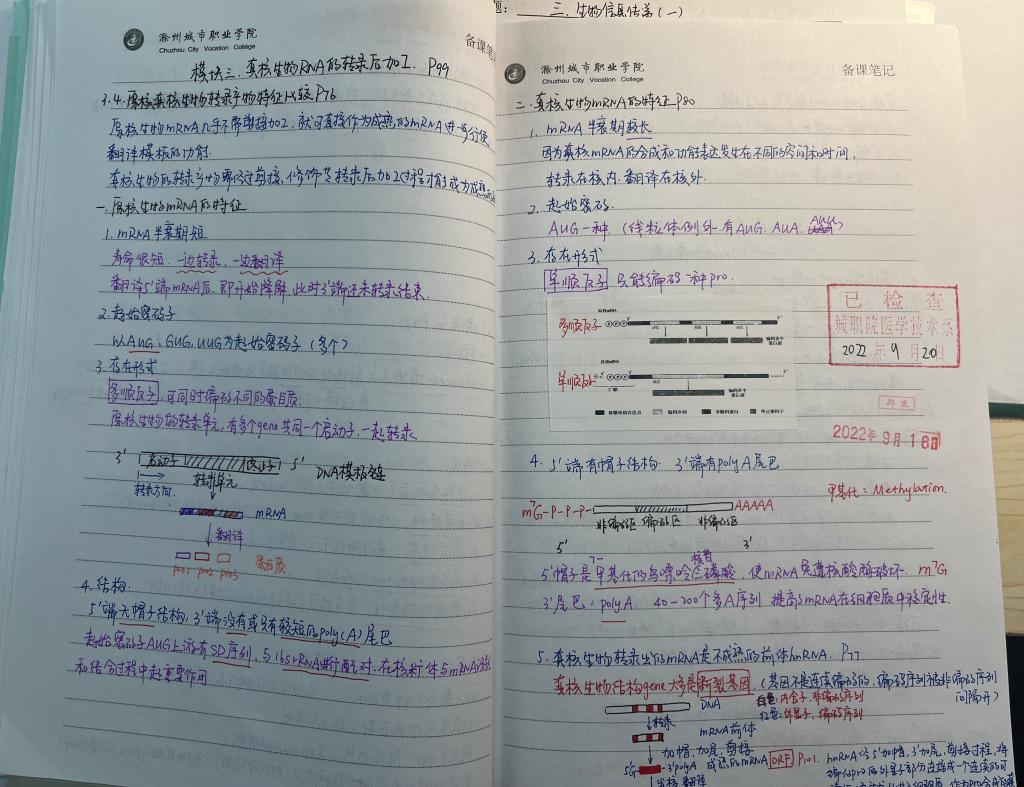 题: 三. 生物信息传递(一)
滁州城市职业学院
Chuzhou City Vocation College
备课笔记
模块三. 真核生物RNA的转录后加工. P99
3.4. 原核真核生物转录产物特征比较 P76
原核生物mRNA几乎不需剪接加工, 就可直接作为成熟的mRNA进一步行使
翻译模板的功能.
真核生物的转录产物要经过剪接, 修饰等转录后加工过程才能成为成熟
一. 原核生物mRNA的特征
1. mRNA半衰期短
寿命很短. 一边转录, 一边翻译
翻译5'端mRNA后, 即开始降解, 此时3'端还未转录结束.
2. 起始密码子
以AUG, GUG, UUG为起始密码子 (多个)
3. 存在形式
多顺反子, 可同时编码不同的蛋白质.
原核生物的转录单元, 有多个gene共同一个启动子. 一起转录
3' 启动子 终止子 5' DNA模板链
转录方向 转录单元
mRNA
翻译
pro1 pro2 pro3 蛋白质
4. 结构.
5'端无帽子结构, 3'端没有或只有较短的poly(A)尾巴
起始密码子AUG上游有SD序列, 与16srRNA进行配对, 在核糖体与mRNA
和结合过程中起重要作用
滁州城市职业学院
Chuzhou City Vocation College
备课笔记
二. 真核生物mRNA的特征 P80
1. mRNA半衰期较长
因为真核mRNA的合成和功能表达发生在不同的空间和时间,
转录在核内. 翻译在核外.
2. 起始密码.
AUG一种 (线粒体例外. 有AUG. AUA. AUU)
3. 存在形式
单顺反子 只能编码一种pro.
多顺反子
单顺反子
已检查
城职院医学技术系
2022年9月20
2022年9月16日
4. 5'端有帽子结构. 3'端有polyA尾巴
甲基化: Methylation.
m7G-P-P-P- AAAAA
非编码区 编码区 非编码区
5' 3'
5'帽子是甲基化的鸟嘌呤核苷三磷酸, 使mRNA免遭核酸酶破坏. m7G
3'尾巴: polyA 40-200个多A序列. 提高了mRNA在细胞质中稳定性.
5. 真核生物转录出的mRNA是不成熟的前体hnRNA. P77
真核生物结构gene大多是断裂基因. (基因不是连续编码的, 编码序列被非编码序列
间隔开)
DNA
白色: 内含子. 非编码序列
红色: 外显子. 编码序列
转录
mRNA前体
加帽. 加尾. 剪接
5'G 3'polyA 成熟的mRNA ORF P101. hnRNA经5'加帽, 3'加尾, 剪接过程, 将